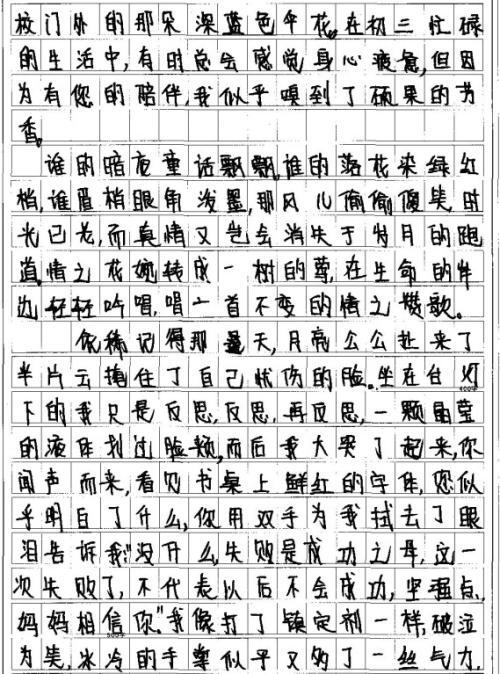 校门外的那朵深蓝色伞花。在初三忙碌
的生活中,有时总会感觉身心疲惫,但因
为有您的陪伴,我似乎嗅到了硕果的芳
香。
谁的暗夜童话飘飘,谁的落花染绿红
梢,谁眉梢眼角泼墨,那风儿偷偷傻笑,时
光已老,而真情又岂会消失于岁月的跑
道,情之花婉转成一树的莺,在生命的岸
边轻轻吟唱,唱一首不变的情之赞歌。
依稀记得那是天,月亮公公赶来了
半片云掩住了自己忧伤的脸。坐在台灯
下的我只是反思,反思,再反思,一颗晶莹
的液体划过脸颊,而后我大哭了起来,你
闻声而来,看见书桌上鲜红的字体,您似
乎明白了什么,你用双手为我拭去了眼
泪告诉我:"没什么,失败是成功之母,这一
次失败了,不代表以后不会成功,坚强点,
妈妈相信你"我像打了镇定剂一样,破泣
为笑,冰冷的手掌似乎又多了一丝气力,